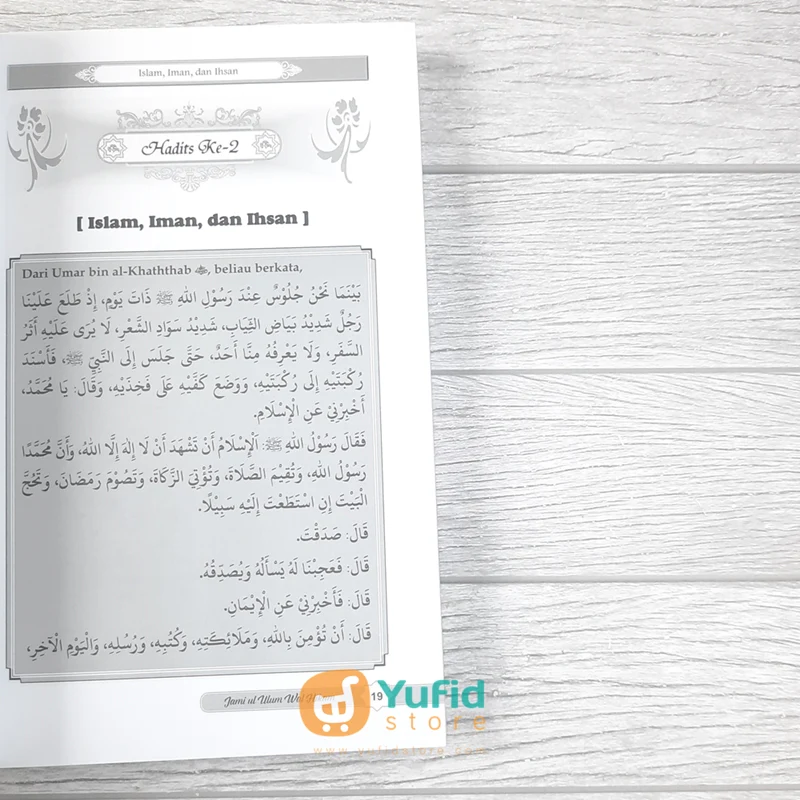 Islam, Iman, dan Ihsan
Hadits Ke-2
[ Islam, Iman, dan Ihsan ]
Dari Umar bin al-Khaththab ﷺ, beliau berkata,
بَيْنَمَا نَحْنُ جُلُوْسٌ عِنْدَ رَسُوْلِ اللهِ ﷺ ذَاتَ يَوْمٍ، إِذْ طَلَعَ عَلَيْنَا
رَجُلٌ شَدِيْدُ بَيَاضِ الثِّيَابِ، شَدِيْدُ سَوَادِ الشَّعْرِ، لَا يُرَى عَلَيْهِ أَثَرُ
السَّفَرِ، وَلَا يَعْرِفُهُ مِنَّا أَحَدٌ، حَتَّى جَلَسَ إِلَى النَّبِيِّ ﷺ، فَأَسْنَدَ
رُكْبَتَيْهِ إِلَى رُكْبَتَيْهِ، وَوَضَعَ كَفَّيْهِ عَلَى فَخِذَيْهِ، وَقَالَ: يَا مُحَمَّدُ،
أَخْبِرْنِيْ عَنِ الْإِسْلَامِ.
فَقَالَ رَسُوْلُ اللهِ ﷺ: اَلْإِسْلَامُ أَنْ تَشْهَدَ أَنْ لَا إِلٰهَ إِلَّا اللهُ، وَأَنَّ مُحَمَّدًا
رَسُوْلُ اللهِ، وَتُقِيْمَ الصَّلَاةَ، وَتُؤْتِيَ الزَّكَاةَ، وَتَصُوْمَ رَمَضَانَ، وَتَحُجَّ
الْبَيْتَ إِنِ اسْتَطَعْتَ إِلَيْهِ سَبِيْلًا.
قَالَ: صَدَقْتَ.
قَالَ: فَعَجِبْنَا لَهُ يَسْأَلُهُ وَيُصَدِّقُهُ.
قَالَ: فَأَخْبِرْنِيْ عَنِ الْإِيْمَانِ.
قَالَ: أَنْ تُؤْمِنَ بِاللهِ، وَمَلَائِكَتِهِ، وَكُتُبِهِ، وَرُسُلِهِ، وَالْيَوْمِ الْآخِرِ،
Jami ul Ulum Wal 19
Yufid
store
www.yufidstore.com